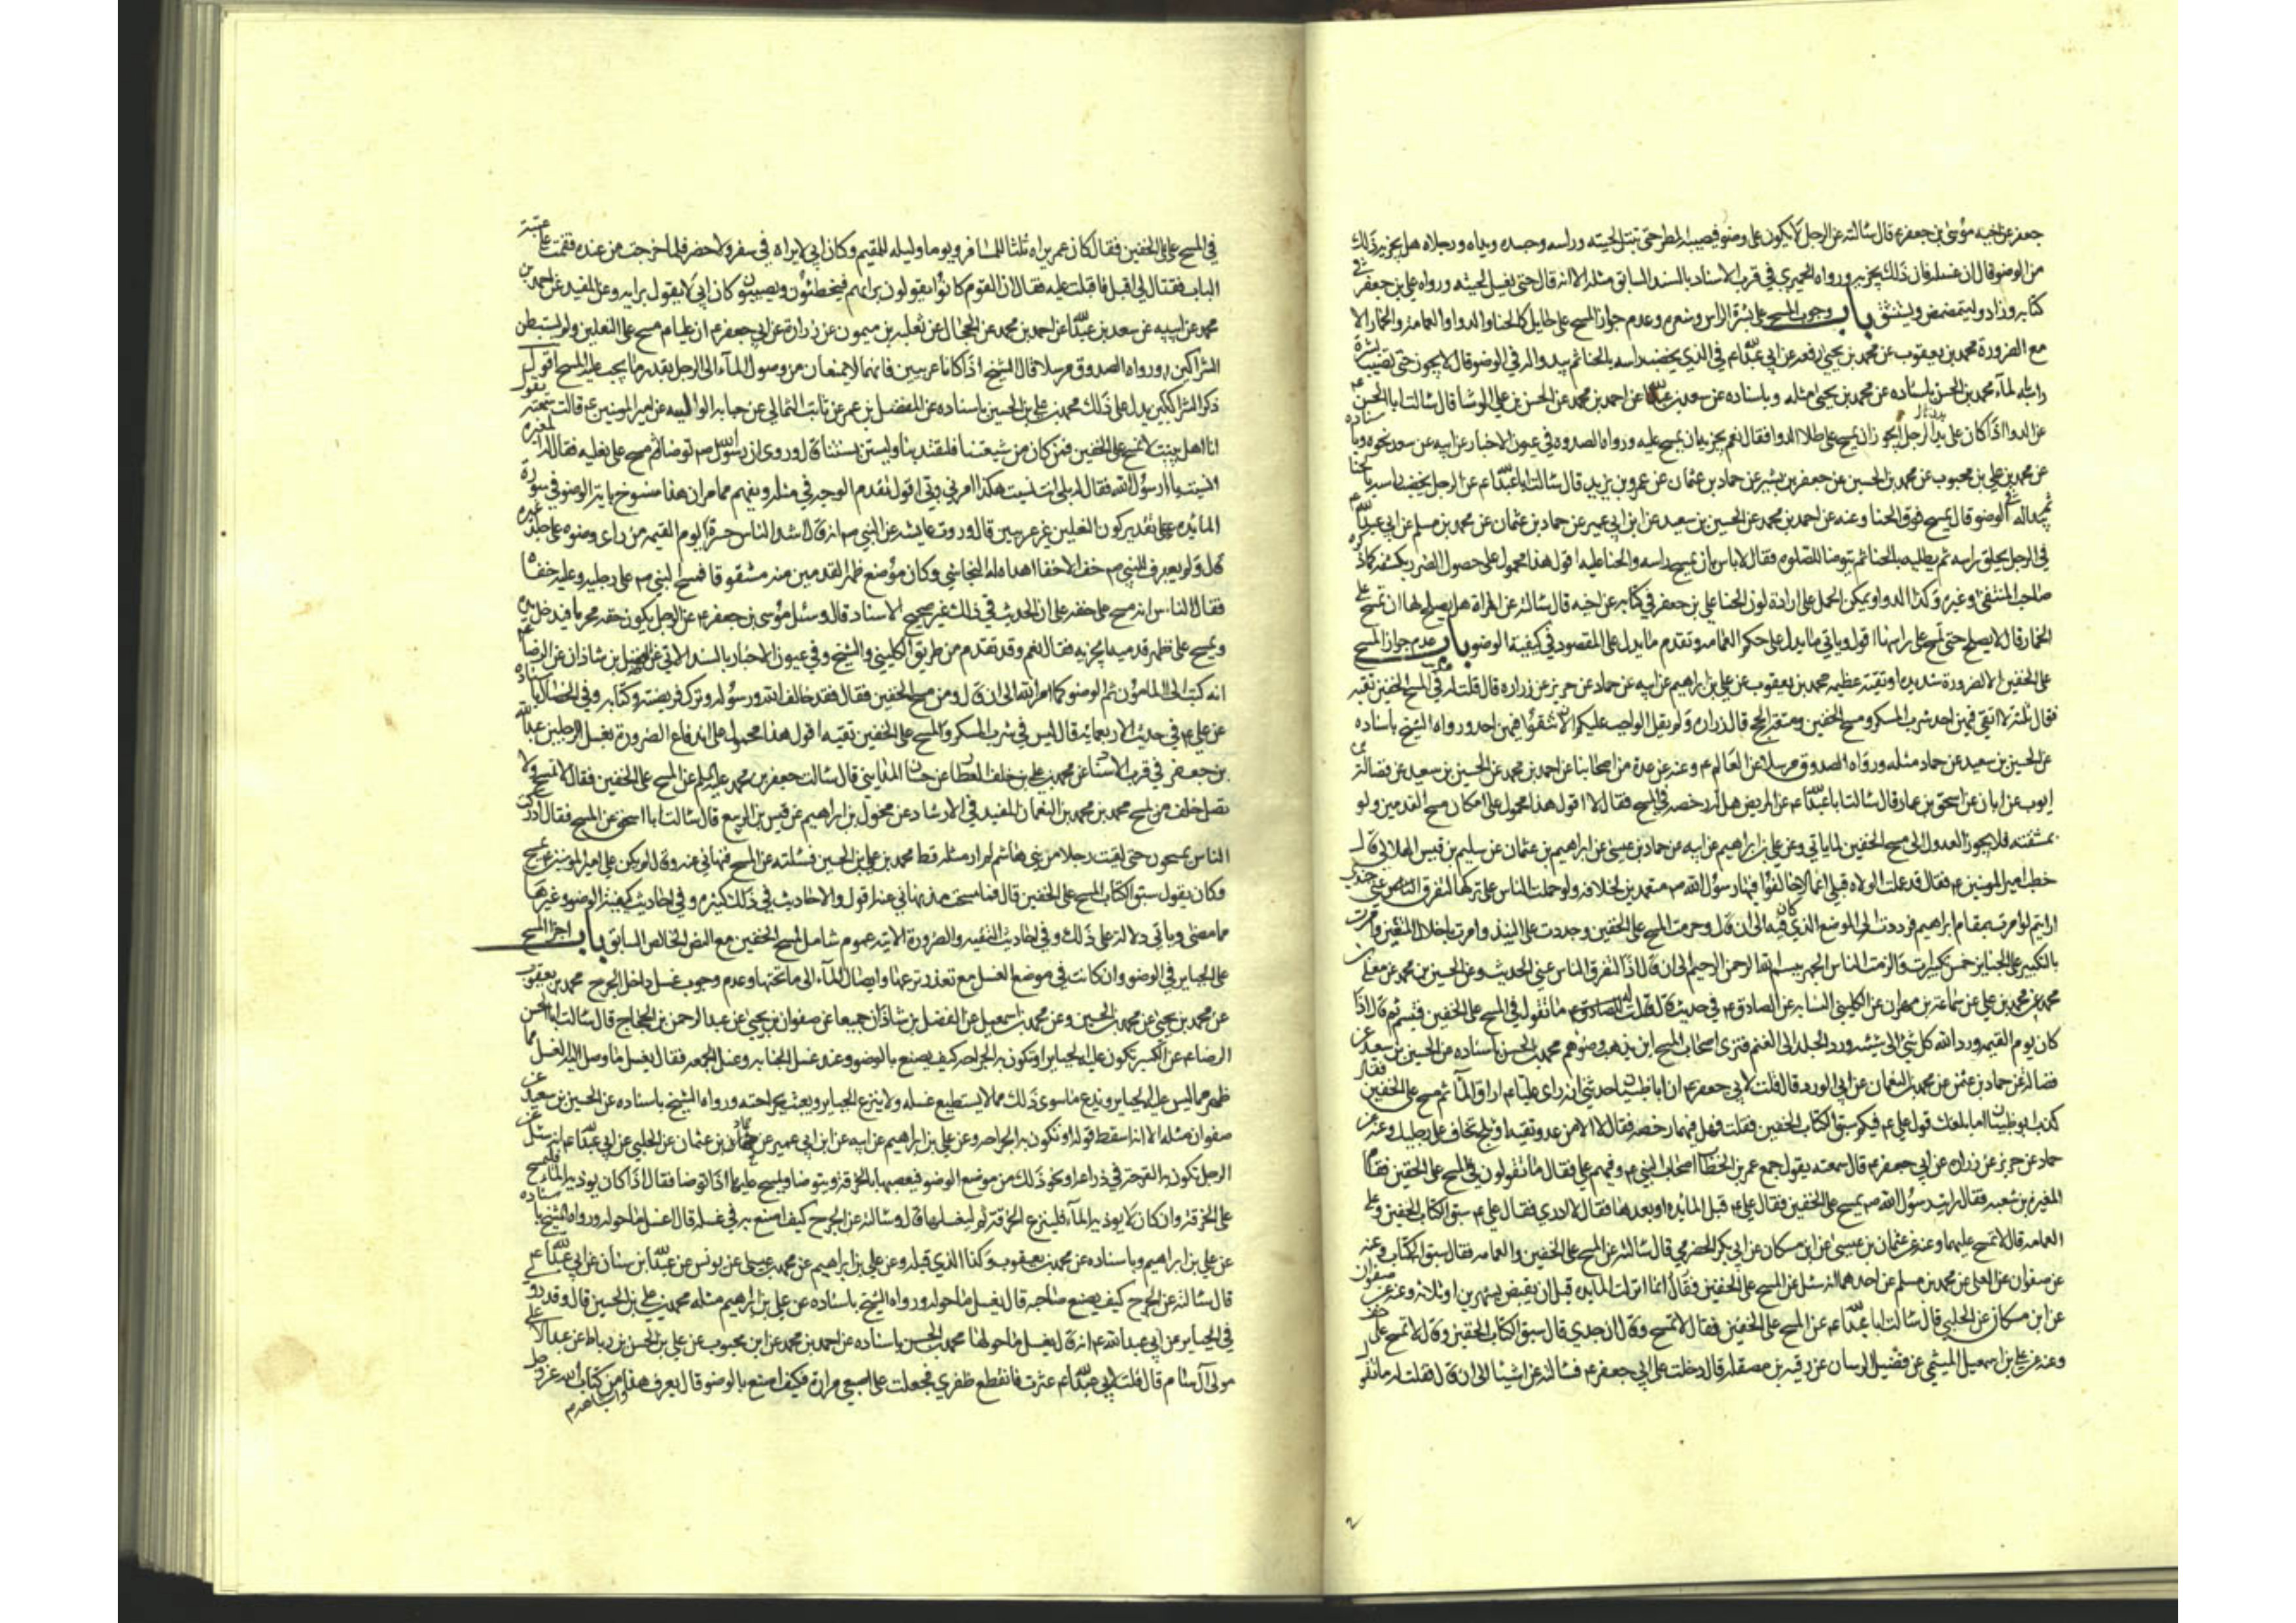 جعفر عن اخيه موسى بن جعفر ع قال سالته عن الرجل لا يكون على وضوء فيصيبه المطر حتى تبتل لحيته وراسه وجسده ويداه ورجلاه هل يجزيه ذلك
من الوضو قال ان غسله فان ذلك يجزيه ورواه الحميري في قرب الاسناد بالسند السابق مثله الا انه قال حتى يغسل لحيته ورواه علي بن جعفر في
كتابه وزاد وليتمضمض وليستنشق باب وجوب المسح على بشرة الراس وشعره وعدم جواز المسح على حايل كالحنا والدوا والعمامة والخمار الا
مع الضرورة محمد بن يعقوب عن محمد بن يحيى رفعه عن ابي عبدالله ع في الذي يخضب راسه بالحنا ثم يبدو له في الوضو قال لا يجوز حتى تصيب بشرة
راسه الماء محمد بن الحسن باسناده عن محمد بن يحيى مثله وباسناده عن سعد بن عبدالله عن احمد بن محمد عن الحسن بن علي الوشا قال سالت ابا الحسن ع
عن الدوا اذا كان على يدي الرجل ايجوز ان يمسح على طلا الدوا فقال نعم يجزيه ان يمسح عليه ورواه الصدوق في عيون الاخبار عن ابيه عن سعد نحوه وباسناده
عن محمد بن علي بن محبوب عن محمد بن الحسين عن جعفر بن بشير عن حماد بن عثمان عن عمر بن يزيد قال سالت ابا عبدالله ع عن الرجل يخضب راسه بالحنا
ثم يبدو له في الوضو قال يمسح فوق الحنا وعنه عن احمد بن محمد عن الحسين بن سعيد عن ابن ابي عمير عن حماد بن عثمان عن محمد بن مسلم عن ابي عبدالله ع
في الرجل يحلق راسه ثم يطليه بالحنا ثم يتوضا للصلوة فقال لا باس بان يمسح راسه والحنا عليه اقول هذا محمول على حصول الضرر بكشفه كما ذكره
صاحب المنتقى وغيره وكذا الدوا ويمكن الحمل على ارادة لون الحنا علي بن جعفر في كتابه عن اخيه قال سالته عن المراة هل يصلح لها ان تمسح على
الخمار قال لا يصلح حتى تمسح على راسها اقول وياتي ما يدل على حكم العمامه وتقدم ما يدل على المقصود في كيفية الوضو باب عدم جواز المسح
على الخفين الا لضرورة شديدة او تقية عظيمة محمد بن يعقوب عن علي بن ابراهيم عن ابيه عن حماد عن حريز عن زراره قال قلت له في المسح الخفين تقيه
فقال ثلثة لا اتقي فيهن احدا شرب المسكر ومسح الخفين ومتعة الحج قال زراره ولم يقل الواجب عليكم الا تتقوا فيهن احدا ورواه الشيخ باسناده
عن الحسين بن سعيد عن حماد مثله ورواه الصدوق مرسلا عن العالم ع وعنه عن عدة من اصحابنا عن احمد بن محمد عن الحسين بن سعيد عن فضالة بن
ايوب عن ابان عن اسحق بن عمار قال سالت ابا عبدالله ع عن المريض هل له رخصه في المسح فقال لا اقول هذا محمول على امكان مسح القدمين ولو
بمشقته فلا يجوز العدول الى مسح الخفين لما ياتي وعن علي بن ابراهيم عن ابيه عن حماد بن عيسى عن ابراهيم بن عثمان عن سليم بن قيس الهلالي قال
خطب امير المومنين ع فقال قد عملت الولاه قبلي اعمالا خالفوا فيها رسول الله ص متعمدين لخلافه ولو حملت الناس على تركها لتفرق الناس عني جندي
ارايتم لو امرت بمقام ابراهيم فرددته الى الموضع الذي كان فيه الى ان قال وحرمت المسح على الخفين وحددت على النبيذ وامرت باحلال المتعتين وامرت
بالتكبير على الجنايز خمس تكبيرات والزمت الناس الجهر ببسم الله الرحمن الرحيم الى ان قال اذا لتفرق الناس عني الحديث وعن الحسين بن محمد عن معلى بن
محمد عن محمد بن علي عن سماعة بن مهران عن الكلبي النسابه عن الصادق ع في حديث قال قلت له ما تقول في المسح على الخفين فتبسم ثم قال اذا
كان يوم القيمه ورد الله كل شي الى شيئه ورد الجلد الى الغنم فترى اصحاب المسح اين يذهب وضوهم محمد بن الحسن باسناده عن الحسين بن سعيد عن
فضالة عن حماد بن عثمن عن محمد بن النعمان عن ابي الورد قال قلت لابي جعفر ع ان ابا ظبيان حدثني انه راى عليا ع اراق الماء ثم مسح على الخفين فقال
كذب ابو ظبيان اما بلغك قول علي ع فيكم سبق الكتاب الخفين فقلت فهل فيهما رخصه فقال لا الا من عدو تتقيه او ثلج تخاف على رجليك وعنه عن
حماد عن حريز عن زراره عن ابي جعفر ع قال سمعته يقول جمع عمر بن الخطاب اصحاب النبي ص وفيهم علي فقال ما تقولون في المسح على الخفين فقام
المغيرة بن شعبه فقال رايت رسول الله ص يمسح على الخفين فقال علي ع قبل المائده او بعدها فقال لا ادري فقال علي ع سبق الكتاب الخفين وعلى
العمامه قال لا تمسح عليهما وعنه عن عثمان بن عيسى عن ابن مسكان عن ابي بكر الحضرمي قال سالته عن المسح على الخفين والعمامه فقال سبق الكتاب وعنه
عن صفوان عن العلا عن محمد بن مسلم عن احدهما انه سئل عن المسح على الخفين فقال انما انزلت المايده قبل ان يقبض بشهرين او ثلاثه وعنه عن صفوان
عن ابن مسكان عن الحلبي قال سالت ابا عبدالله ع عن المسح على الخفين فقال لا تمسح وقال ان جدي قال سبق الكتاب الخفين وقال لا تمسح على خف
وعنه عن علي بن اسمعيل الميثمي عن فضيل الرسان عن رقيه بن مصقله قال دخلت على ابي جعفر ع فسالته عن اشيا الى ان قال فقلت له ما تقول
في المسح على الخفين فقال كان عمر يراه ثلثا للمسافر ويوما وليله للمقيم وكان ابي لا يراه في سفر ولا حضر فلما خرجت من عنده فقمت على عتبة
الباب فقال لي اقبل فاقبلت عليه فقال ان القوم كانوا يقولون برايهم فيخطئون ويصيبون وكان ابي لا يقول برايه وعن المفيد عن احمد بن
محمد عن ابيه عن سعد بن عبدالله عن احمد بن محمد عن الحجال عن ثعلبه بن ميمون عن زرارة عن ابي جعفر ع ان عليا ع مسح على النعلين ولم يستبطن
الشراكين ورواه الصدوق مرسلا قال الشيخ اذا كانا عربيين فانهما لا يمنعان من وصول الماء الى الرجل بقدر ما يجب عليه المسح اقول
ذكر الشراكين يدل على ذلك محمد بن علي بن الحسين باسناده عن المفضل بن عمر عن ثابت الثمالي عن حبابه الوالبيه عن امير المومنين ع قالت سمعته يقول
انا اهل بيت لا نمسح على الخفين فمن كان من شيعتنا فليقتد بنا وليستن بسنتنا قال وروى ان رسول الله ص توضا ثم مسح على نعليه فقال له المغيره
انسيت يا رسول الله فقال له بل انت نسيت هكذا امرني ربي اقول تقدم الوجه في مثله ويفهم مما مر ان هذا منسوخ باية الوضو في سورة
المايده على تقدير كون النعلين غير عربيين قال وروت عايشه عن النبي ص انه قال اشد الناس حسرة يوم القيمه من راى وضوه على جلد غيره
قال ولم يعرف للنبي ص خف الا خفا اهداه له النجاشي وكان موضع ظهر القدمين منه مشقوقا فمسح النبي ص على رجليه وعليه خفاه
فقال الناس انه مسح على خفيه على ان الحديث في ذلك غير صحيح الاسناد قال وسئل موسى بن جعفر ع عن الرجل يكون خفه مخرقا فيدخل يده
ويمسح على ظهر قدميه ايجزيه فقال نعم وقد تقدم من طريق الكليني والشيخ وفي عيون الاخبار بالسند الاتي عن الفضل بن شاذان عن الرضا ع
انه كتب الى المامون ثم الوضو كما امر الله الى ان قال ومن مسح الخفين فقال فقد خالف الله ورسوله وترك فريضته وكتابه وفي الخصال باسناده
عن علي ع في حديث الاربعمائة قال ليس في شرب المسكر والمسح على الخفين تقيه اقول هذا محمول على اندفاع الضرورة بغسل الرجلين عبدالله
بن جعفر في قرب الاسناد عن محمد بن علي بن خلف العطار عن حسان المدايني قال سالت جعفر بن محمد عليه السلم عن المسح على الخفين فقال لا تمسح ولا
تصل خلف من يمسح محمد بن محمد بن النعمان المفيد في الارشاد عن مخول بن ابراهيم عن قيس بن الربيع قال سالت ابا اسحق عن المسح فقال ادركت
الناس يمسحون حتى لقيت رجلا من بني هاشم لم ار مثله قط محمد بن علي بن الحسين فسئلته عن المسح فنهاني عنه وقال لم يكن علي امير المومنين ع يمسح
وكان يقول سبق الكتاب المسح على الخفين قال فما مسحت مذ نهاني عنه اقول والاحاديث في ذلك كثيرة وفي احاديث كيفية الوضو وغيرها
مما مضى وياتي دلالة على ذلك وفي احاديث التقيه والضرورة الاتيه عموم شامل لمسح الخفين مع النص الخاص السابق باب اجزا المسح
على الجباير في الوضو وان كانت في موضع الغسل مع تعذر نزعها وايصال الماء الى ما تحتها وعدم وجوب غسل داخل الجرح محمد بن يعقوب
عن محمد بن يحيى عن محمد بن الحسين وعن محمد بن اسمعيل عن الفضل بن شاذان جميعا عن صفوان بن يحيى عن عبد الرحمن بن الحجاج قال سالت ابا الحسن
الرضا ع عن الكسير تكون عليه الجباير او تكون به الجراحه كيف يصنع بالوضو وعند غسل الجنابه وغسل الجمعه فقال يغسل ما وصل اليه الغسل مما
ظهر مما ليس عليه الجباير ويدع ما سوى ذلك مما لا يستطيع غسله ولا ينزع الجباير ويعبث بجراحته ورواه الشيخ باسناده عن الحسين بن سعيد عن
صفوان مثله الا انه اسقط قوله او تكون به الجراحه وعن علي بن ابراهيم عن ابيه عن ابن ابي عمير عن حماد بن عثمان عن الحلبي عن ابي عبدالله ع انه سئل عن
الرجل تكون به القرحة في ذراعه او نحو ذلك من موضع الوضو فيعصبها بالخرقة ويتوضا ويمسح عليها اذا توضا فقال اذا كان يوذيه الماء فليمسح
على الخرقة وان كان لا يوذيه الماء فلينزع الخرقة ثم ليغسلها قال وسالته عن الجرح كيف اصنع به في غسله قال اغسل ما حوله ورواه الشيخ باسناده
عن علي بن ابراهيم وباسناده عن محمد بن يعقوب وكذا الذي قبله وعن علي بن ابراهيم عن محمد بن عيسى عن يونس عن عبدالله بن سنان عن ابي عبدالله ع
قال سالته عن الجرح كيف يصنع صاحبه قال يغسل ما حوله ورواه الشيخ باسناده عن علي بن ابراهيم مثله محمد بن علي بن الحسين قال وقد روي
في الجباير عن ابي عبدالله ع انه قال يغسل ما حولها محمد بن الحسن باسناده عن احمد بن محمد عن ابن محبوب عن علي بن الحسن بن رباط عن عبد الاعلى
مولى آل سام قال قلت لابي عبدالله ع عثرت فانقطع ظفري فجعلت على اصبعي مرارة فكيف اصنع بالوضو قال يعرف هذا من كتاب الله عز وجل